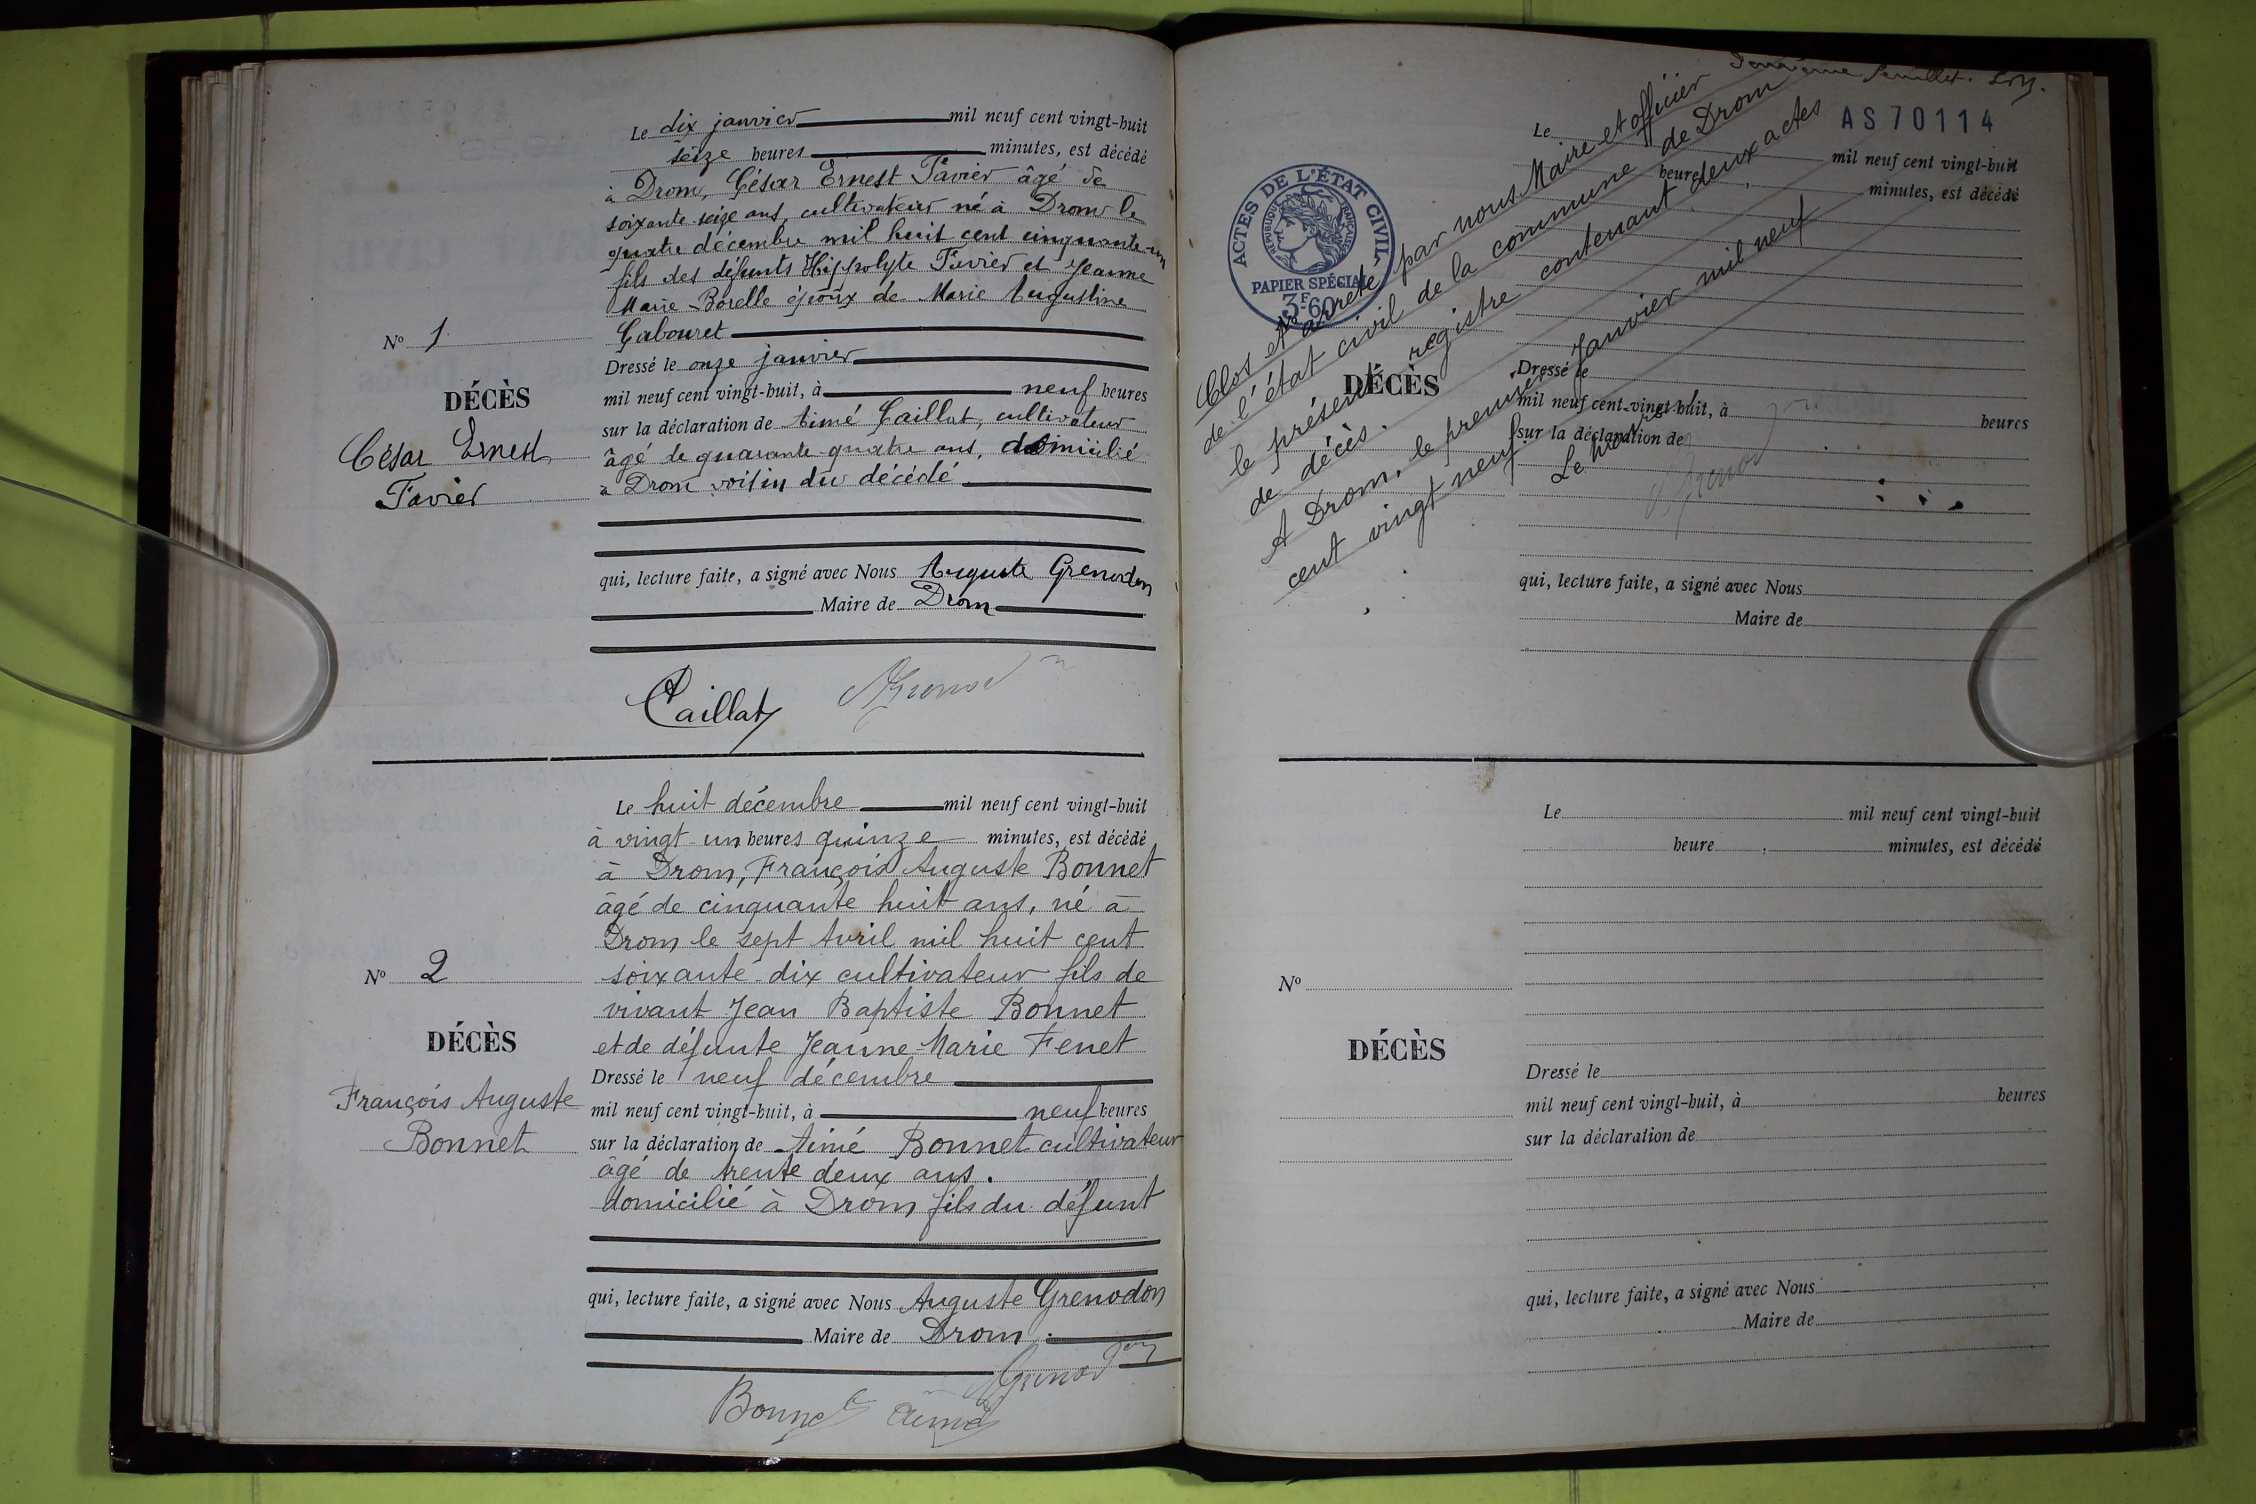 Le dix janvier mil neuf cent vingt-huit
seize heures minutes, est décédé
à Drom, César Ernest Favier âgé de
soixante seize ans, cultivateur né à Drom le
quatre décembre mil huit cent cinquante-un
fils des défunts Hippolyte Favier et Jeanne
Marie Borelle époux de Marie Augustine
Gabouret
Nº 1
DÉCÈS
César Ernest
Favier
Dressé le onze janvier
mil neuf cent vingt-huit, à neuf heures
sur la déclaration de Aimé Caillat, cultivateur
âgé de quarante quatre ans, domicilié
à Drom voisin du décédé
qui, lecture faite, a signé avec Nous Auguste Grenodon
Maire de Drom
Caillat
Le huit décembre mil neuf cent vingt-huit
à vingt un heures quinze minutes, est décédé
à Drom, François Auguste Bonnet
âgé de cinquante huit ans, né à
Drom le sept Avril mil huit cent
soixante-dix cultivateur fils de
vivant Jean Baptiste Bonnet
et de défunte Jeanne-Marie Fenet
Nº 2
DÉCÈS
François Auguste
Bonnet
Dressé le neuf décembre
mil neuf cent vingt-huit, à neuf heures
sur la déclaration de Aimé Bonnet cultivateur
âgé de trente deux ans.
domicilié à Drom fils du défunt
qui, lecture faite, a signé avec Nous Auguste Grenodon
Maire de Drom.
Grenodon
Bonnet Aimé
feuillet.
AS 70114
ACTES DE L'ÉTAT CIVIL
RÉPUBLIQUE FRANÇAISE
PAPIER SPÉCIAL
3F60
Clos et arrêté par nous Maire et officier
de l'état civil de la commune de Drom
le présent registre contenant deux actes
de décès.
A Drom, le premier Janvier mil neuf
cent vingt neuf
Le Maire
Le mil neuf cent vingt-huit
heure minutes, est décédé
Nº
DÉCÈS
Dressé le
mil neuf cent vingt-huit, à heures
sur la déclaration de
qui, lecture faite, a signé avec Nous
Maire de
Le mil neuf cent vingt-huit
heure minutes, est décédé
Nº
DÉCÈS
Dressé le
mil neuf cent vingt-huit, à heures
sur la déclaration de
qui, lecture faite, a signé avec Nous
Maire de